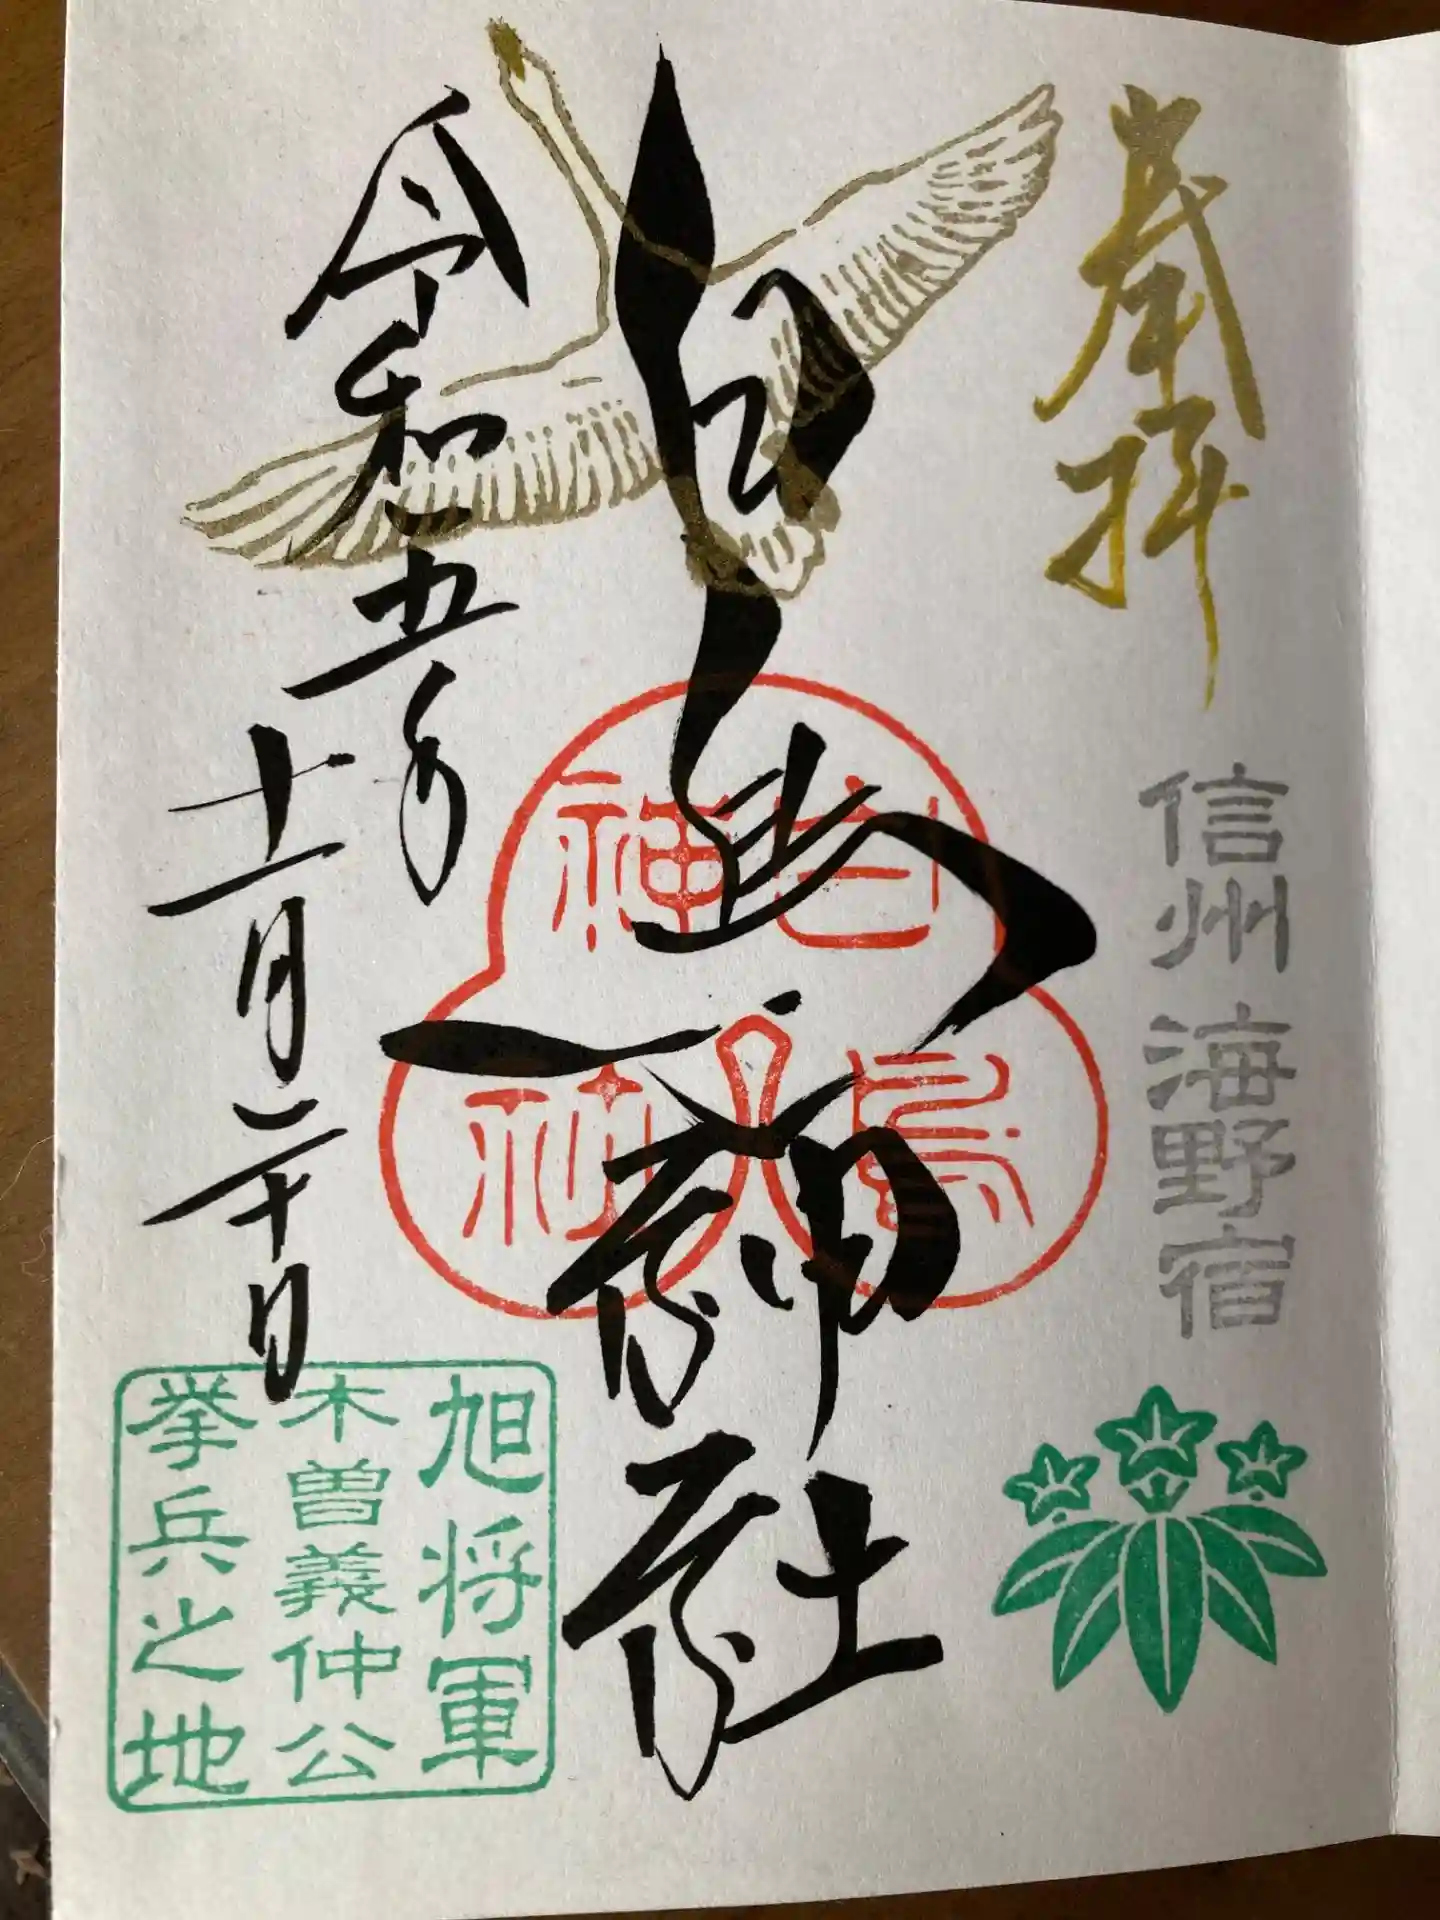 奉拝
信州 海野宿
白鳥神社
白鳥
神社
令和五年
十一月二十日
旭将軍
木曽義仲公
挙兵之地